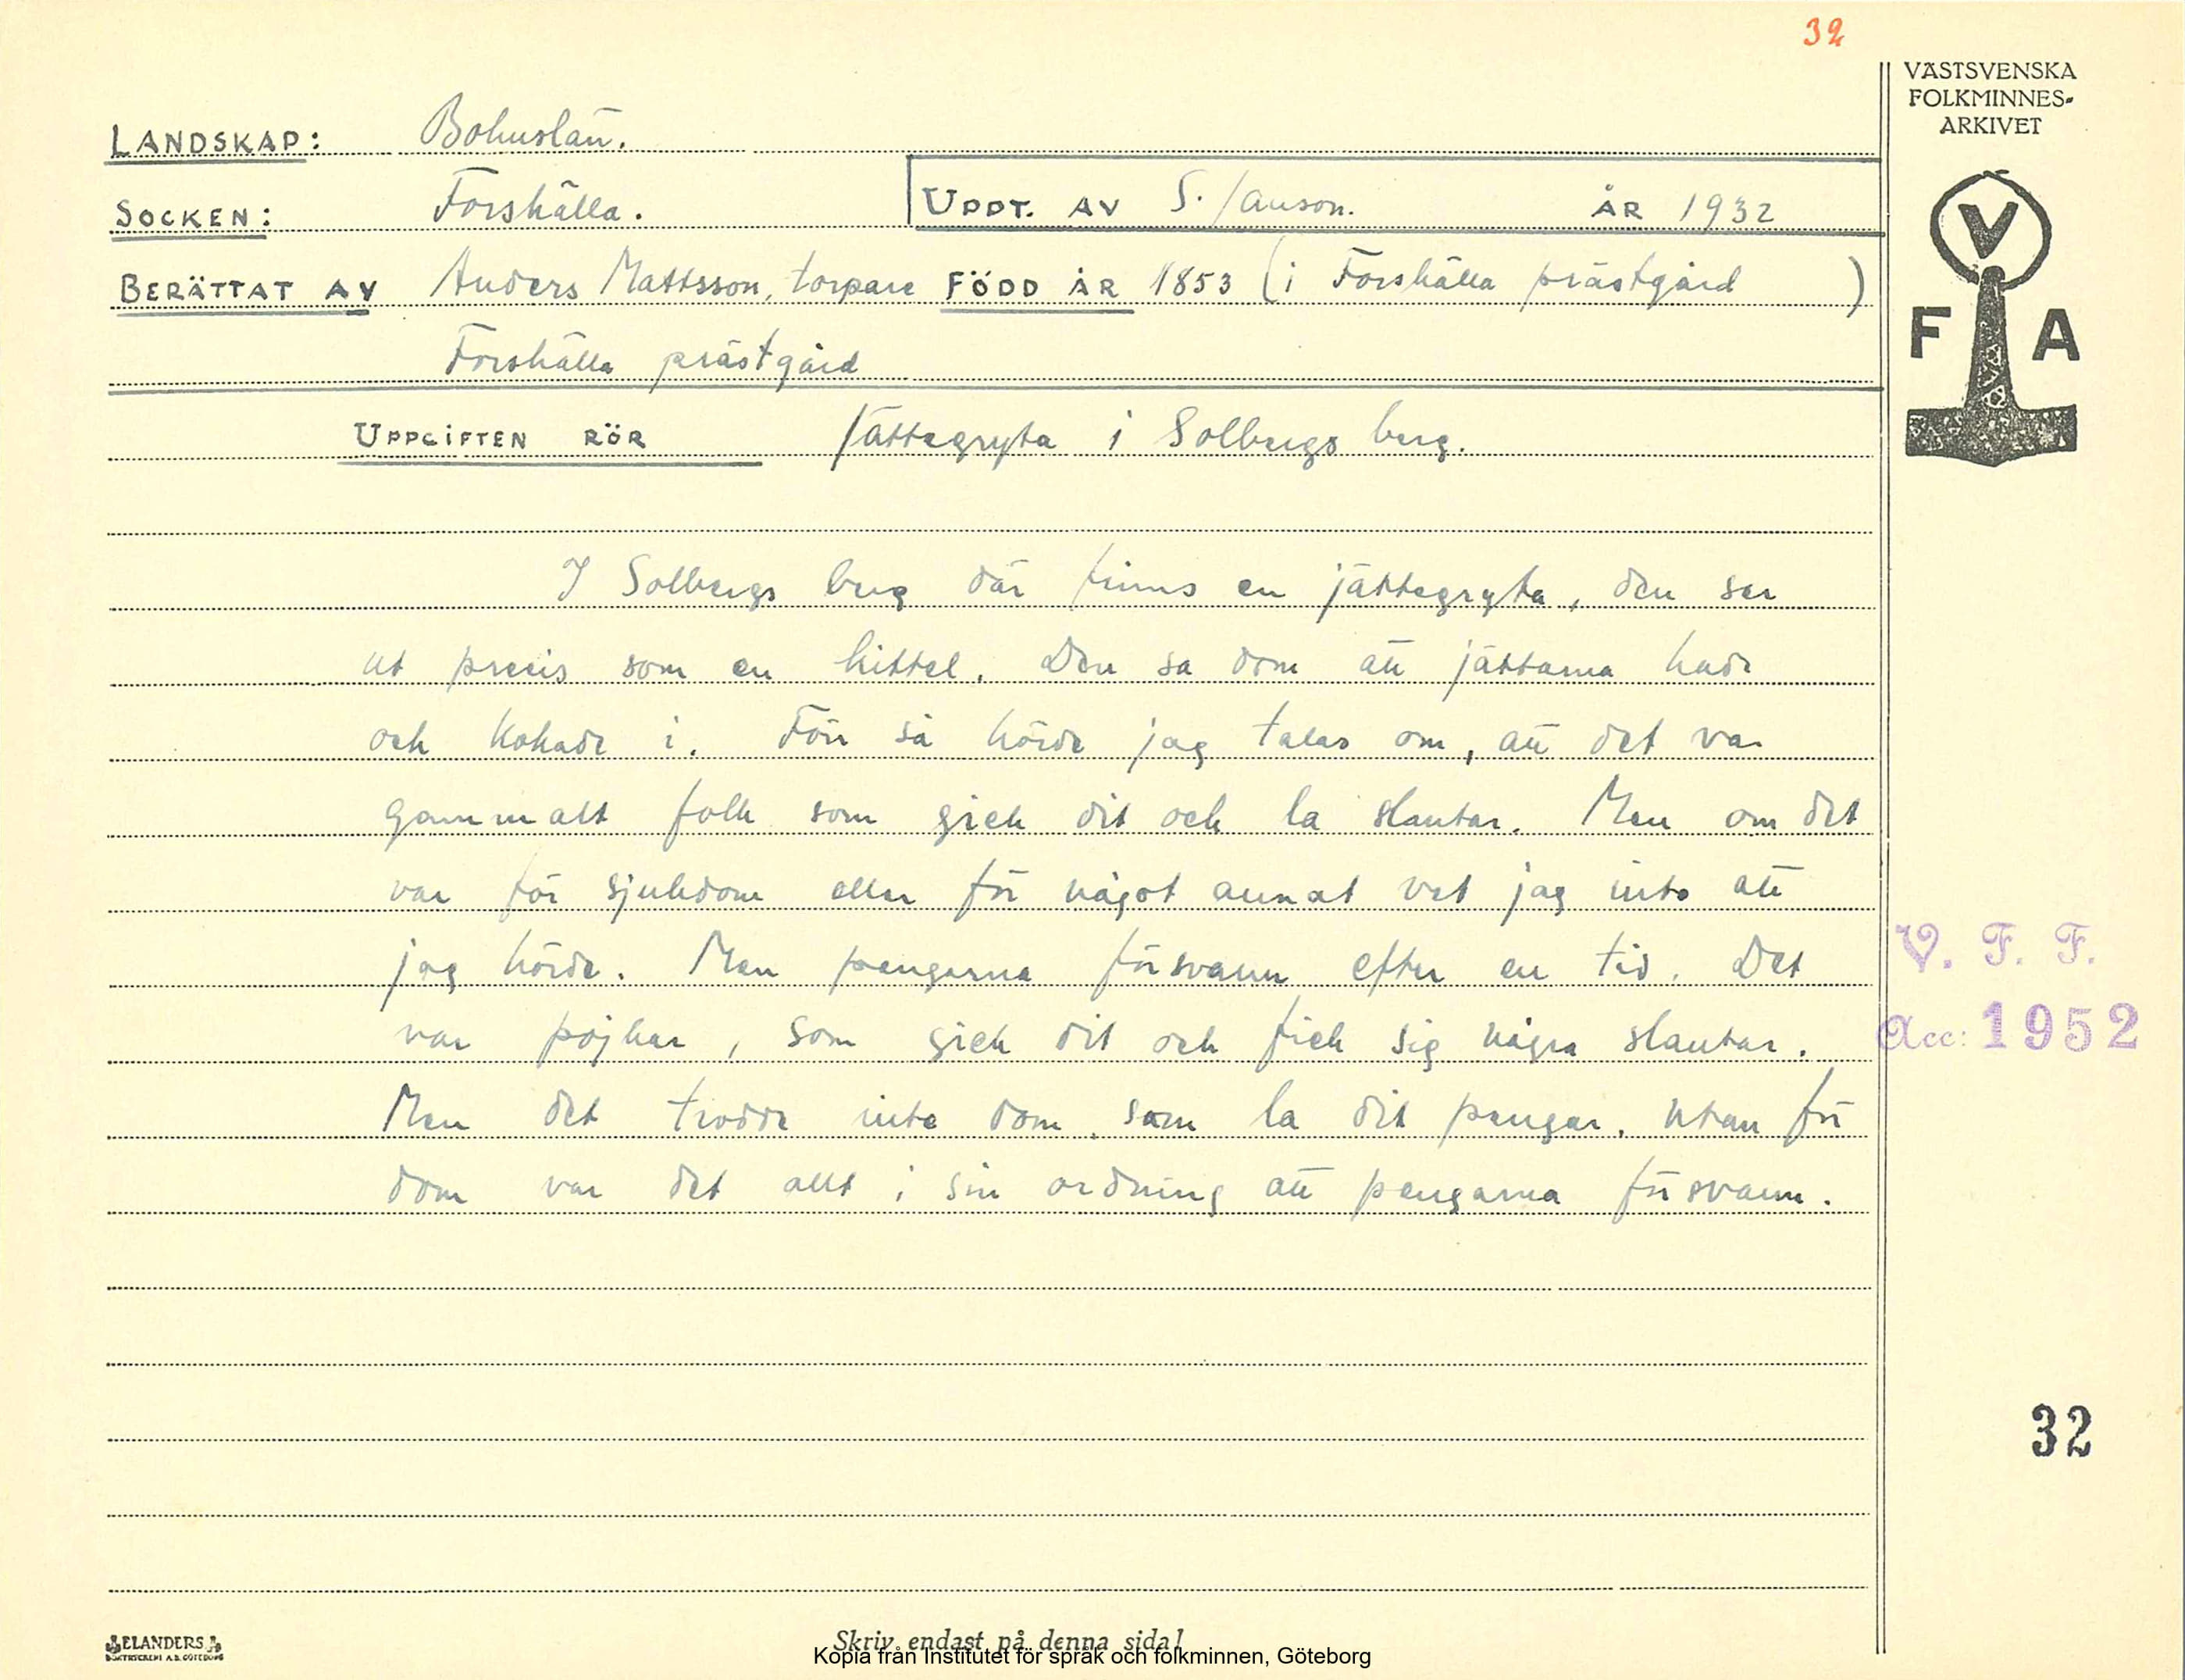 32
VÄSTSVENSKA
FOLKMINNES-
ARKIVET
LANDSKAP: Bohuslän.
SOCKEN: Forshälla. UPPT. AV S. Janson. ÅR 1932
BERÄTTAT AV Anders Mattsson, torpare FÖDD ÅR 1853 (i Forshälla prästgård )
Forshälla prästgård
V
F A
UPPGIFTEN RÖR Jättegryta i Solbergs berg.
I Solbergs berg där finns en jättegryta, den ser
ut precis som en kittel. Den sa dom att jättarna hade
och kokade i. Förr så hörde jag talas om, att det var
gammalt folk som gick dit och la slantar. Men om det
var för sjukdom eller för något annat vet jag inte att
jag hörde. Men pengarna försvann efter en tid. Det
var pojkar, som gick dit och fick sig några slantar.
Men det trodde inte dom, som la dit pengar. Utan för
dom var det allt i sin ordning att pengarna försvann.
V. F. F.
Acc: 1952
32
ELANDERS
BOKTRYCKERI A.B. GÖTEBORG
Skriv endast på denna sida!
Kopia från Institutet för språk och folkminnen, Göteborg